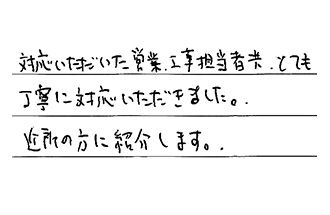 対応いただいた営業、工事担当者共、とても
丁寧に対応いただきました。
近所の方に紹介します。